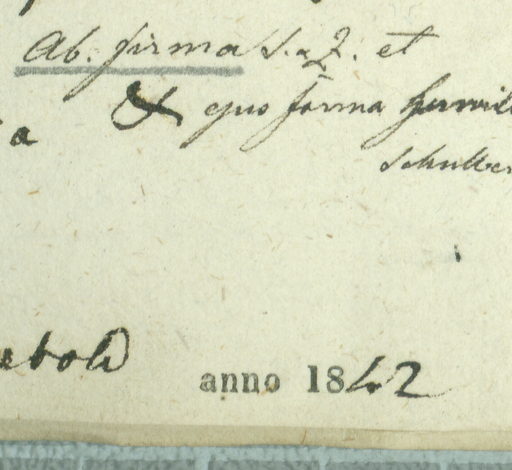 Ab. firma S. & Z. et
a & ejus forma humil
Schulter
ebold
anno 1842